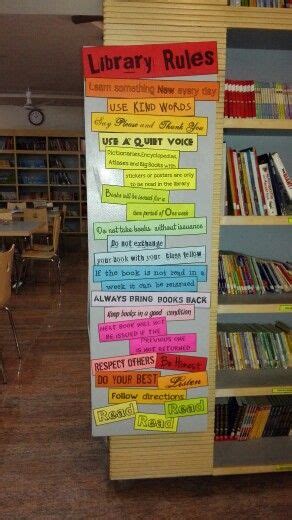 Library Rules
Learn something New every day
USE KIND WORDS
Say Please and Thank You
USE A QUIET VOICE
Dictionaries,Encyclopedias,
Atlases and Big Books with
stickers or posters are only
to be read in the library
Books will be issued for a
time period of One week
Do not take books without issuance
Do not exchange
your book with your class fellow
If the book is not read in a
week it can be reissued
ALWAYS BRING BOOKS BACK
Keep books in a good condition
NEXT BOOK WILL NOT
BE ISSUED IF THE
PREVIOUS ONE
IS NOT RETURNED
RESPECT OTHERS Be Honest
DO YOUR BEST Listen
Follow directions
Read Read
Read